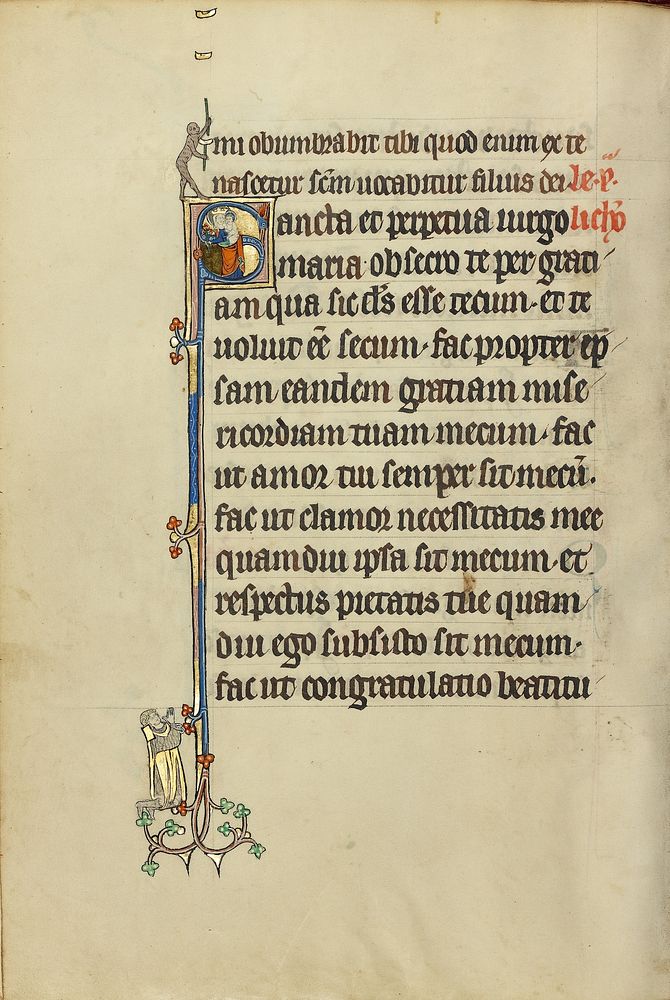 mi obumbrabit tibi quod enim ex te
nascetur scm̄ uocabitur filius dei le·p̄·
Sancta et perpetua uirgo
maria obsecro te per grati
am qua sic dn̄s esse tecum· et te
uoluit eē secum· fac propter ip
sam eandem gratiam mise
ricordiam tuam mecum· fac
ut amor tui semper sit mecū·
fac ut clamor necessitatis mee
quamdiu ipsa sit mecum· et
respectus pietatis tue quam
diu ego subsisto sit mecum·
fac ut congratulatio beatitu